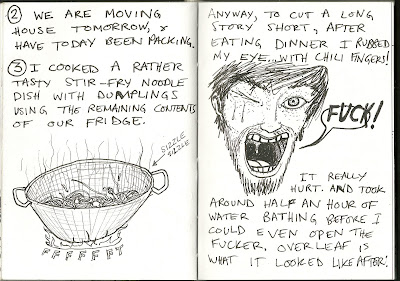 ② WE ARE MOVING
HOUSE TOMORROW, &
HAVE TODAY BEEN PACKING.
③ I COOKED A RATHER
TASTY STIR-FRY NOODLE
DISH WITH DUMPLINGS
USING THE REMAINING CONTENTS
OF OUR FRIDGE.
SIZZLE
SIZZLE
FFFFFFF
ANYWAY, TO CUT A LONG
STORY SHORT, AFTER
EATING DINNER I RUBBED
MY EYE... WITH CHILI FINGERS!
FUCK!
IT REALLY
HURT. AND TOOK
AROUND HALF AN HOUR OF
WATER BATHING BEFORE I
COULD EVEN OPEN THE
FUCKER. OVERLEAF IS
WHAT IT LOOKED LIKE AFTER: